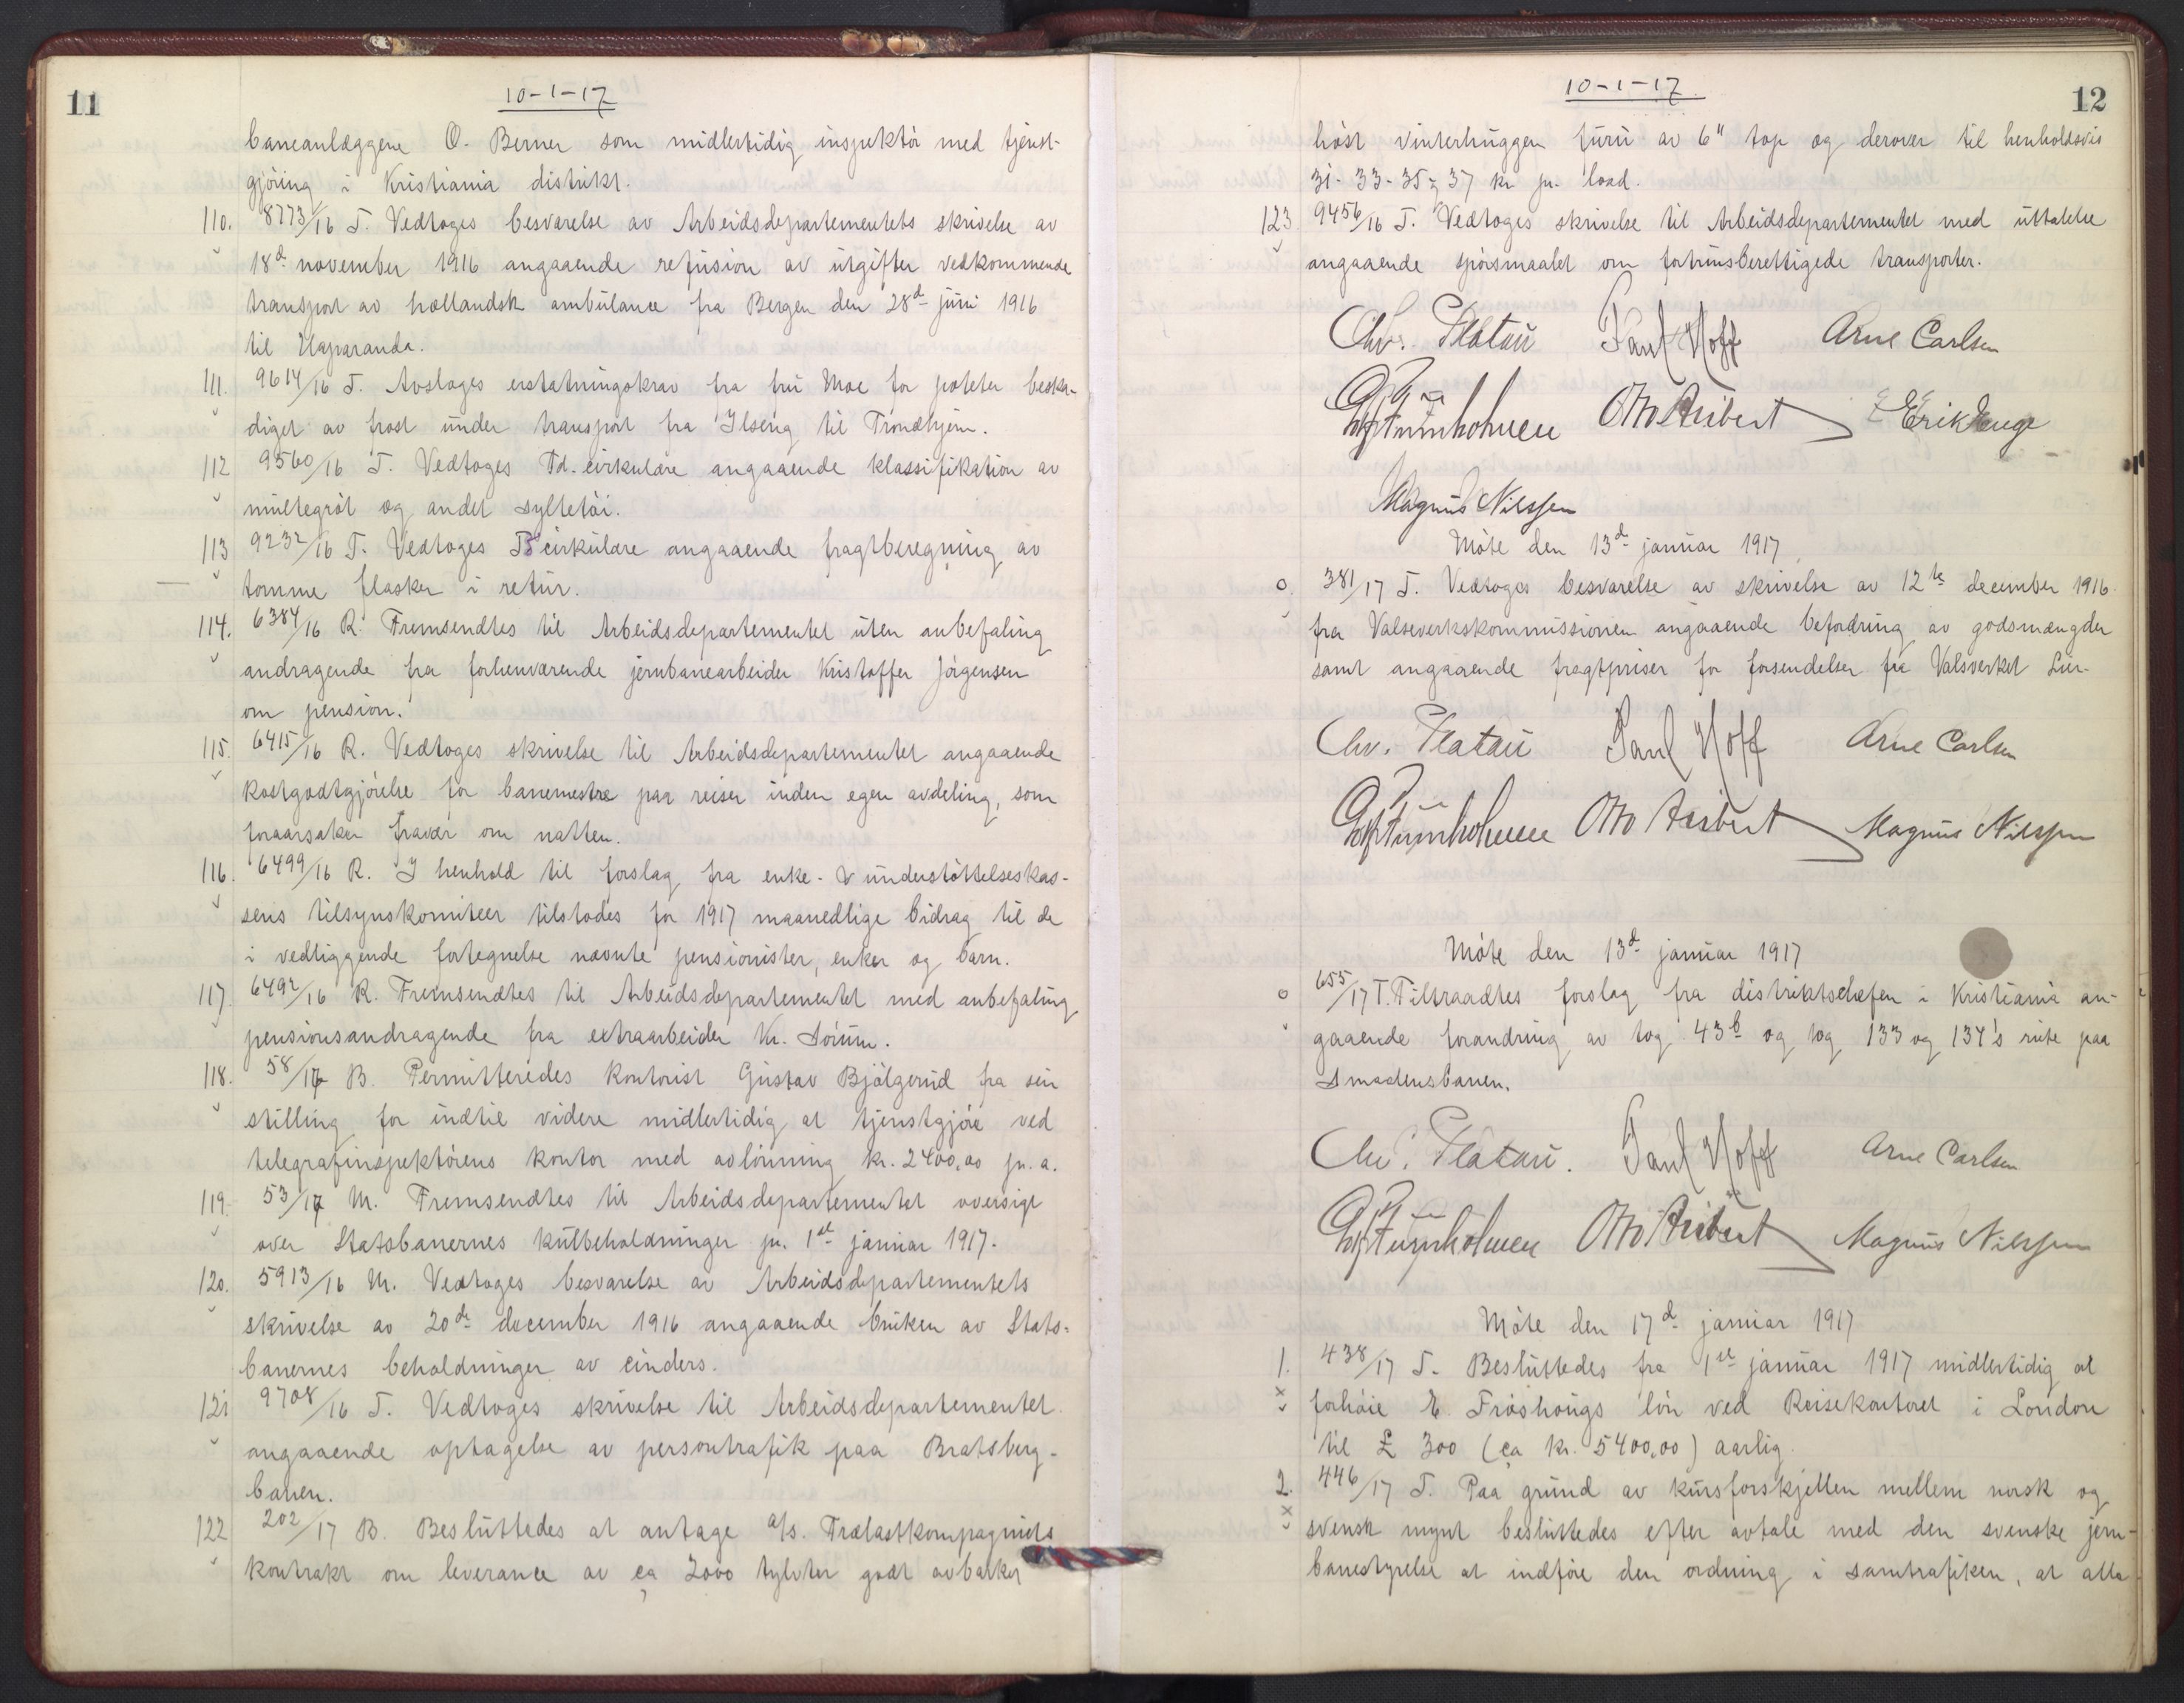 11
10-1-17
baneanlæggene O. Berner som midlertidig inspektör med tjenst-
gjöring i Kristiania distrikt.
110. 8773/16 T. Vedtoges besvarelse av Arbeidsdepartementets skrivelse av
18de november 1916 angaaende refusion av utgifter vedkommende
transport av hollandsk ambulance fra Bergen den 28de juni 1916
til Haparanda.
111. 9614/16 T. Avsloges erstatningskrav fra fru Moe for poteter beska-
diget av frost under transport fra Ilseng til Trondhjem.
112 9560/16 T. Vedtoges Td. cirkulære angaaende klassifikation av
multegröt og andet syltetöi.
113 9232/16 T. Vedtoges cirkulære angaaende fragtberegning av
tomme flasker i retur.
114. 6384/16 R. Fremsendtes til Arbeidsdepartementet uten anbefaling
andragende fra forhenværende jernbanearbeider Kristoffer Jörgensen
om pension.
115. 6415/16 R. Vedtoges skrivelse til Arbeidsdepartementet angaaende
kostgodtgjörelse for banemestre paa reiser inden egen avdeling, som
foraarsaker fravær om natten.
116. 6499/16 R. I henhold til forslag fra enke- & understöttelseskas-
sens tilsynskomiteer tilstodes for 1917 maanedlige bidrag til de
i vedliggende fortegnelse nævnte pensionister, enker og barn.
117. 6492/16 R. Fremsendtes til Arbeidsdepartementet med anbefaling
pensionsandragende fra extraarbeider Kr. Sörum.
118. 58/17 B. Permitteredes kontorist Gustav Bjälgerud fra sin
stilling for indtil videre midlertidig at tjenstgjöre ved
telegrafinspektörens kontor med avlönning kr. 2400,00 pr. a.
119. 53/17 M. Fremsendtes til Arbeidsdepartementet oversigt
over Statsbanernes kulbeholdninger pr. 1ste januar 1917.
120. 5913/16 M. Vedtoges besvarelse av Arbeidsdepartementets
skrivelse av 20de december 1916 angaaende bruken av Stats-
banernes beholdninger av cinders.
121 9708/16 T. Vedtoges skrivelse til Arbeidsdepartementet
angaaende optagelse av persontrafik paa Bratsberg-
banen.
122 202/17 B. Besluttedes at antage a/s. Trælastkompagniets
kontrakt om leverance av ca 2000 tylvter godt avbarket
12
10-1-17.
höst vinterhuggen furu av 6" top og derover til henholdsvis
31- 33- 35 & 37 kr pr. load.
123 9456/16 T. Vedtoges skrivelse til Arbeidsdepartementet med uttalelse
angaaende spörsmaalet om fortrinsberettigede transporter.
Chr. Platou Paul Hoff Arne Carlsen
Otto Aubert Erik Enge
Magnus Nilssen
Möte den 13de januar 1917
o. 381/17 T. Vedtoges besvarelse av skrivelse av 12te december 1916
fra Valseverkskommissionen angaaende befordring av godsmængder
samt angaaende fragtpriser for forsendelser fra Valsverket Lier.
Chr. Platou Paul Hoff Arne Carlsen
Otto Aubert Magnus Nilssen
Möte den 13de januar 1917
o 655/17 T. Tiltraadtes forslag fra distriktschefen i Kristiania an-
gaaende forandring av tog 43b og tog 133 og 134's rute paa
Smaalensbanen.
Chr. Platou. Paul Hoff Arne Carlsen
Otto Aubert Magnus Nilssen
Möte den 17de januar 1917
1. 438/17 T. Besluttedes fra 1ste januar 1917 midlertidig at
forhöie E. Fröshougs lön ved Reisekontoret i London
til £ 300 (ca kr. 5400,00) aarlig.
2. 446/17 T. Paa grund av kursforskjellen mellem norsk og
svensk mynt besluttedes efter avtale med den svenske jern-
banestyrelse at indföre den ordning i samtrafiken, at alle